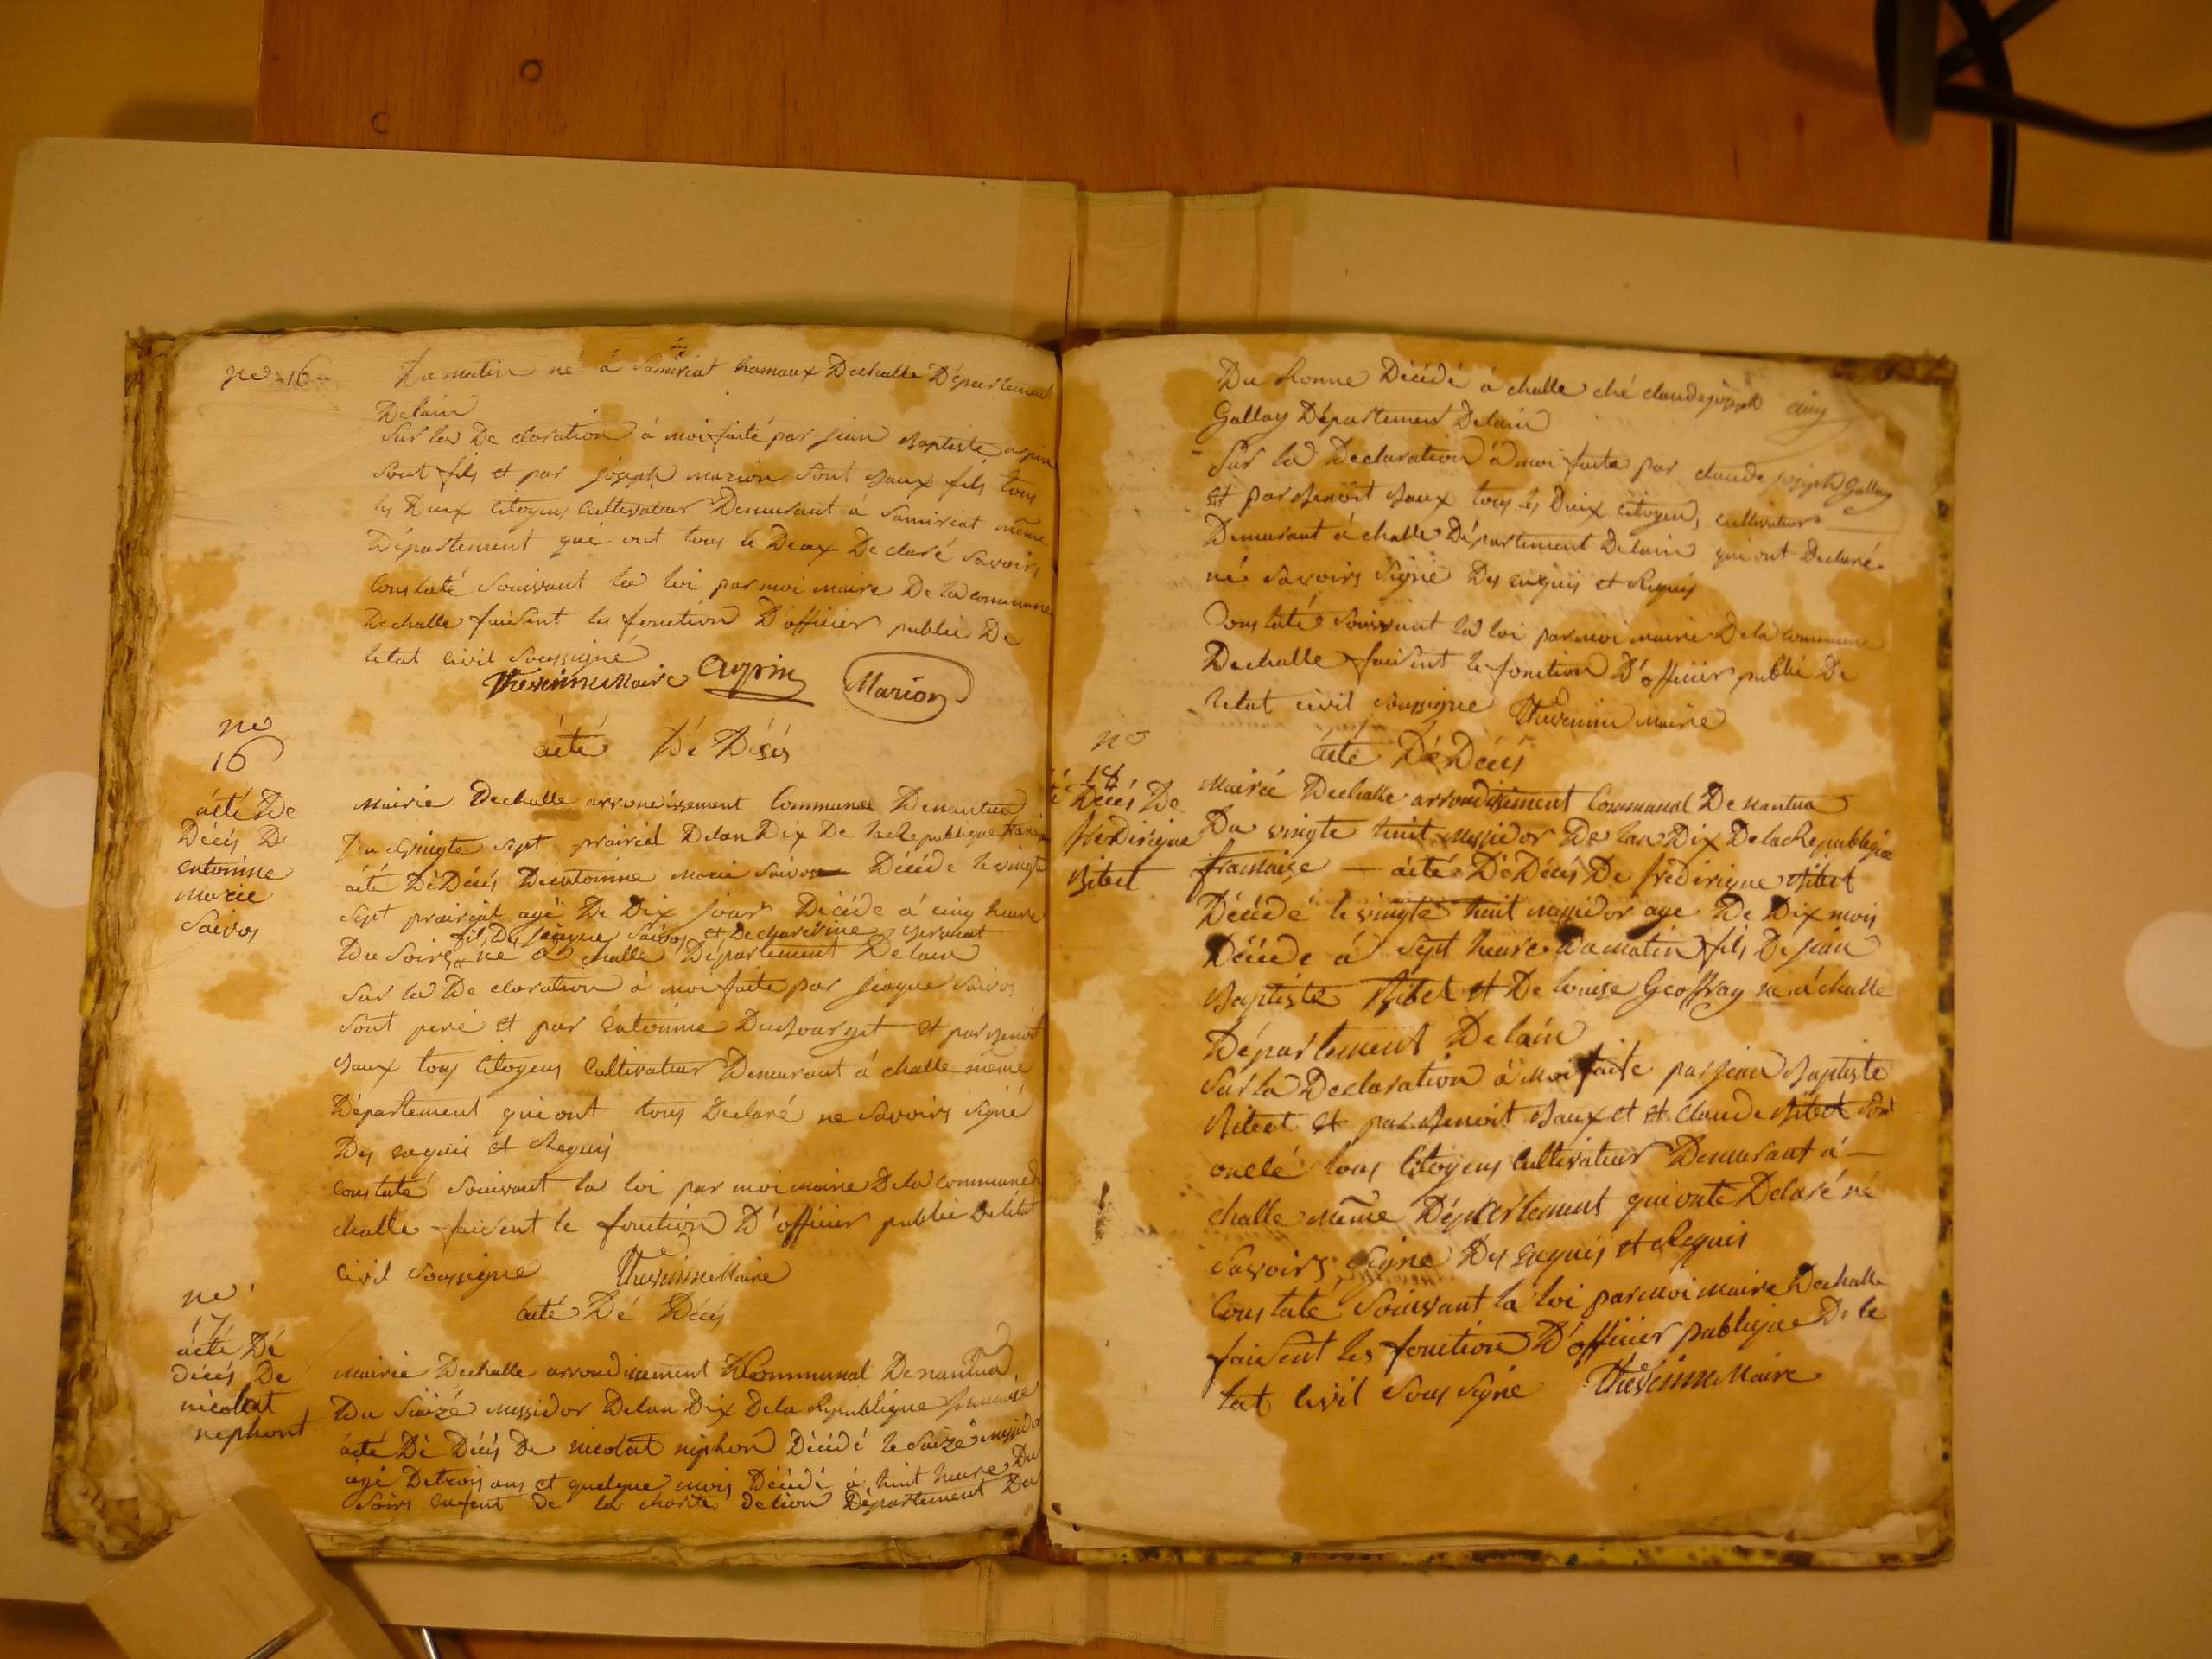 no 16
Du matin né à Samiriat hamaux Dechalle Département
Delain
Sur la De claration à moi faite par jean Baptiste arpin
Sont fils et par joseph marion Sont Baux fils tous
les Deux Citoyens Cultivateur Demurant à Samiriat même
Département qui ont tous le Deux De claré Savoirs
Constaté Souivant la loi par moi maire De la commune
Dechalle faisent les fonction D'officier public De
letat Civil Soussigné
Thevenin Maire Arpin Marion
no
16
acté De
Décés De
entoinne
marie
Saivos
acté Dé Désés
Mairie Dechalle arrondissement Communal Denantua
Du Vingte sept prairial Delan Dix De la Republique
acté Dé Décés De entoinne Marie Saivos Décéde le vingte
Sept prairial agé De Dix jour Décéde á cinq heure
fils De jaque Saivos et De
Du Soirs né a challe Département Delain
Sur la De claration à moi faite par jaque Saivos
Sont peré et par entoinne Dubourget et par Benoit
Baux tous Citoyens Cultivateur Demurant á challe même
Département qui ont tous Declaré ne Savoirs Signé
Des enquis et Requis
Constaté Souivant la loi par moi maire De la commune De
challe faisent le fonction D'officier public De létat
Civil Soussigne Thevenin Maire
no
17
acté Dé
décés De
nicolat
nephont
acté Dé Décés
Mairie Dechalle arrondissement Communal Denantua
Du Saizé messidor Delan Dix Dela Republique franсaise
acté Dé Décés De nicolat niphon Décédé le Saizé messidor
agé Detrois ans et quelque mois Décédé á huit heure Du
Soirs enfent de la charité delion Département Du
Du Ronne Décédé á challe ché claude joseph
Gallay Département Delain
Sur la Declaration à moi faite par claude joseph Gallay
et par Benoit Baux tous les Deux Citoyen, cultivateur
Demurant á challe Département Delain qui ont Declaré
né Savoirs Signé Des enquis et Requis
Constaté Souivant la loi par moi mairie De la commune
Dechalle faisent le fonction D'officier public De
letat civil Soussigne Thevenin Maire
no
18
Décés De
frédirique
Bitet
acté Dé Décés
Mairié Dechalle arrondissement Communal De nantua
Du vingte huit messidor De lan Dix De la Republique
franсaise — acté Dé Décés De frédirique Bitet
Décédé le vingte huit messidor age De Dix mois
Décéde á Sept heure Du matin fils De jean
Baptiste Bitet et De louise Geoffray né á challe
Département Delain
Sur la Declaration á moi faite par jean Baptiste
Bitet et par Benoit Baux et et Claude Bitet Sont
onclé tous Citoyens Cultivateur Demurant á —
challe même Département qui onte Delaré né
Savoirs Signe Des enquis et Requis
Constaté Souivant la loi par moi maire Dechalle
faisent les fonction D'officier publique De le
tat Civil Sous Signé Thevenin Maire